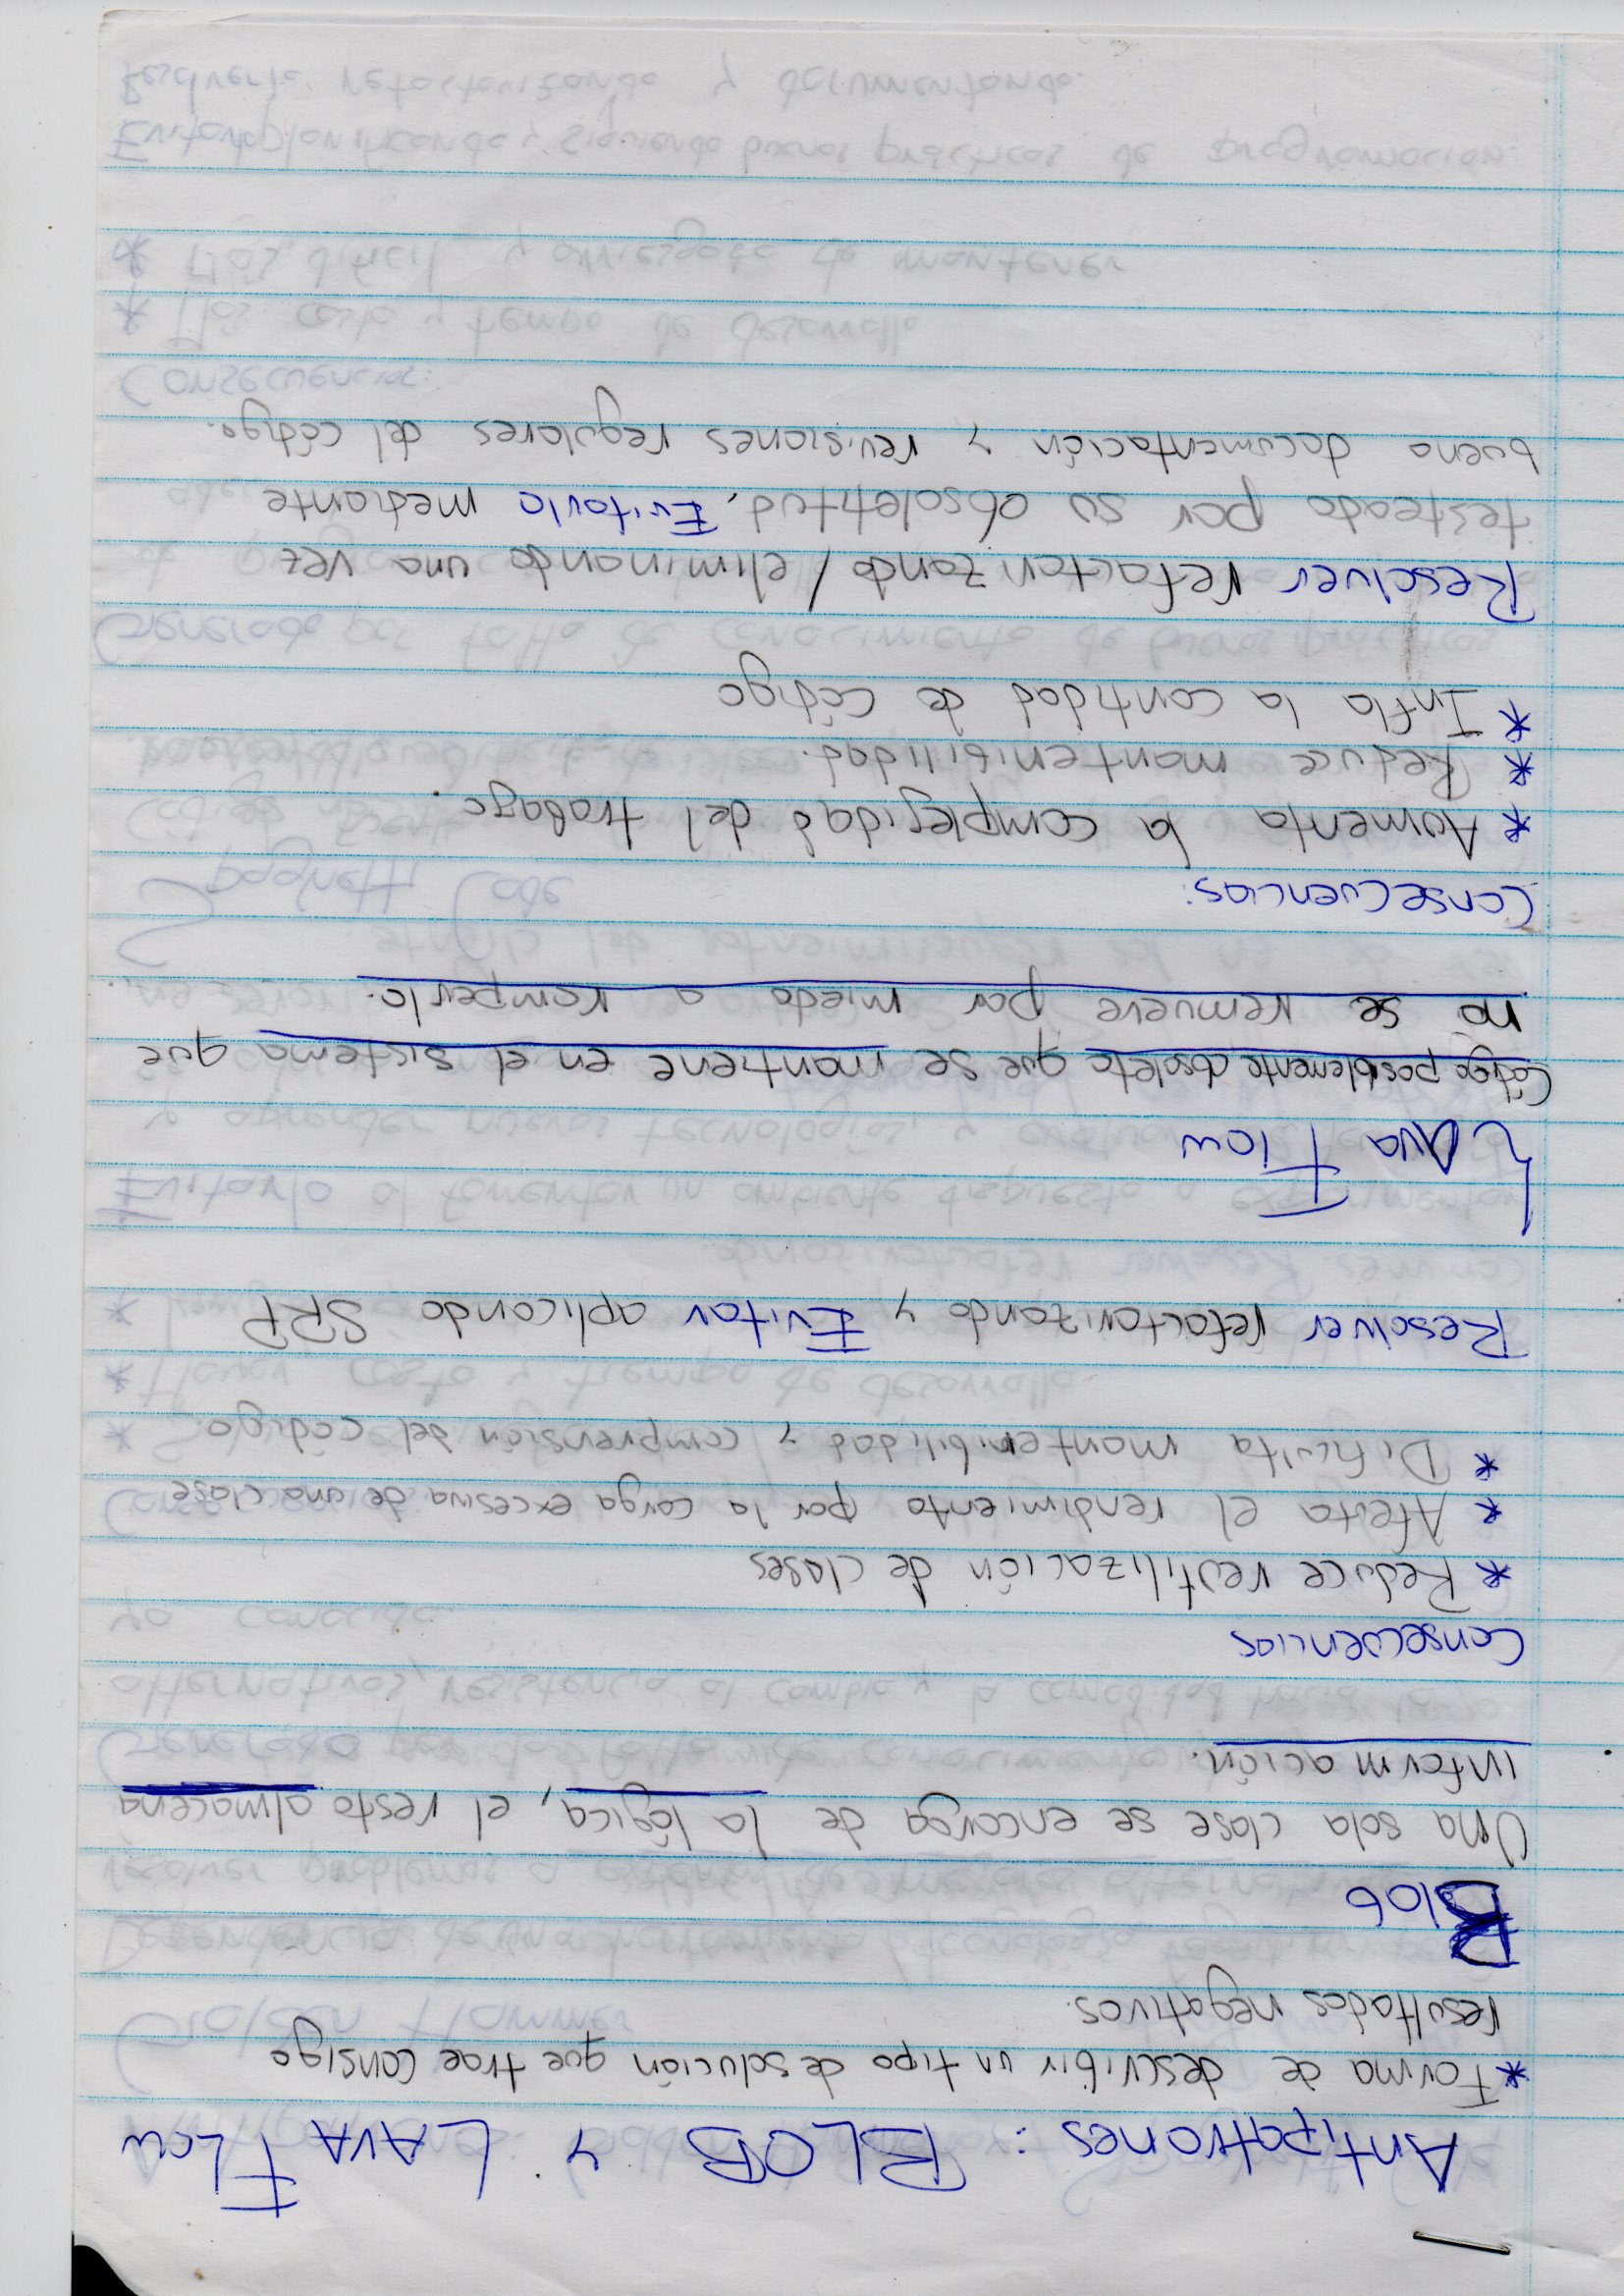 Antipatrones: BLOB y LAVA FLow
* Forma de describir un tipo de solución que trae consigo
resultados negativos.
Blob
Una sola clase se encarga de la lógica, el resto almacena
información.
Consecuencias
* Reduce reutilización de clases
* Afecta el rendimiento por la carga excesiva de una clase
* Dificulta mantenibilidad y comprensión del código
Resolver refactorizando y Evitar aplicando SRP
Lava Flow
Código posiblemente obsoleto que se mantiene en el sistema que
no se remueve por miedo a romperlo.
Consecuencias:
* Aumenta la complegidad del trabago.
* Reduce mantenibilidad.
* Infla la cantidad de código
Resolver refactorizando/eliminando una vez
testeado por su obsoletitud. Evitarlo mediante
buena documentación y revisiones regulares del código.